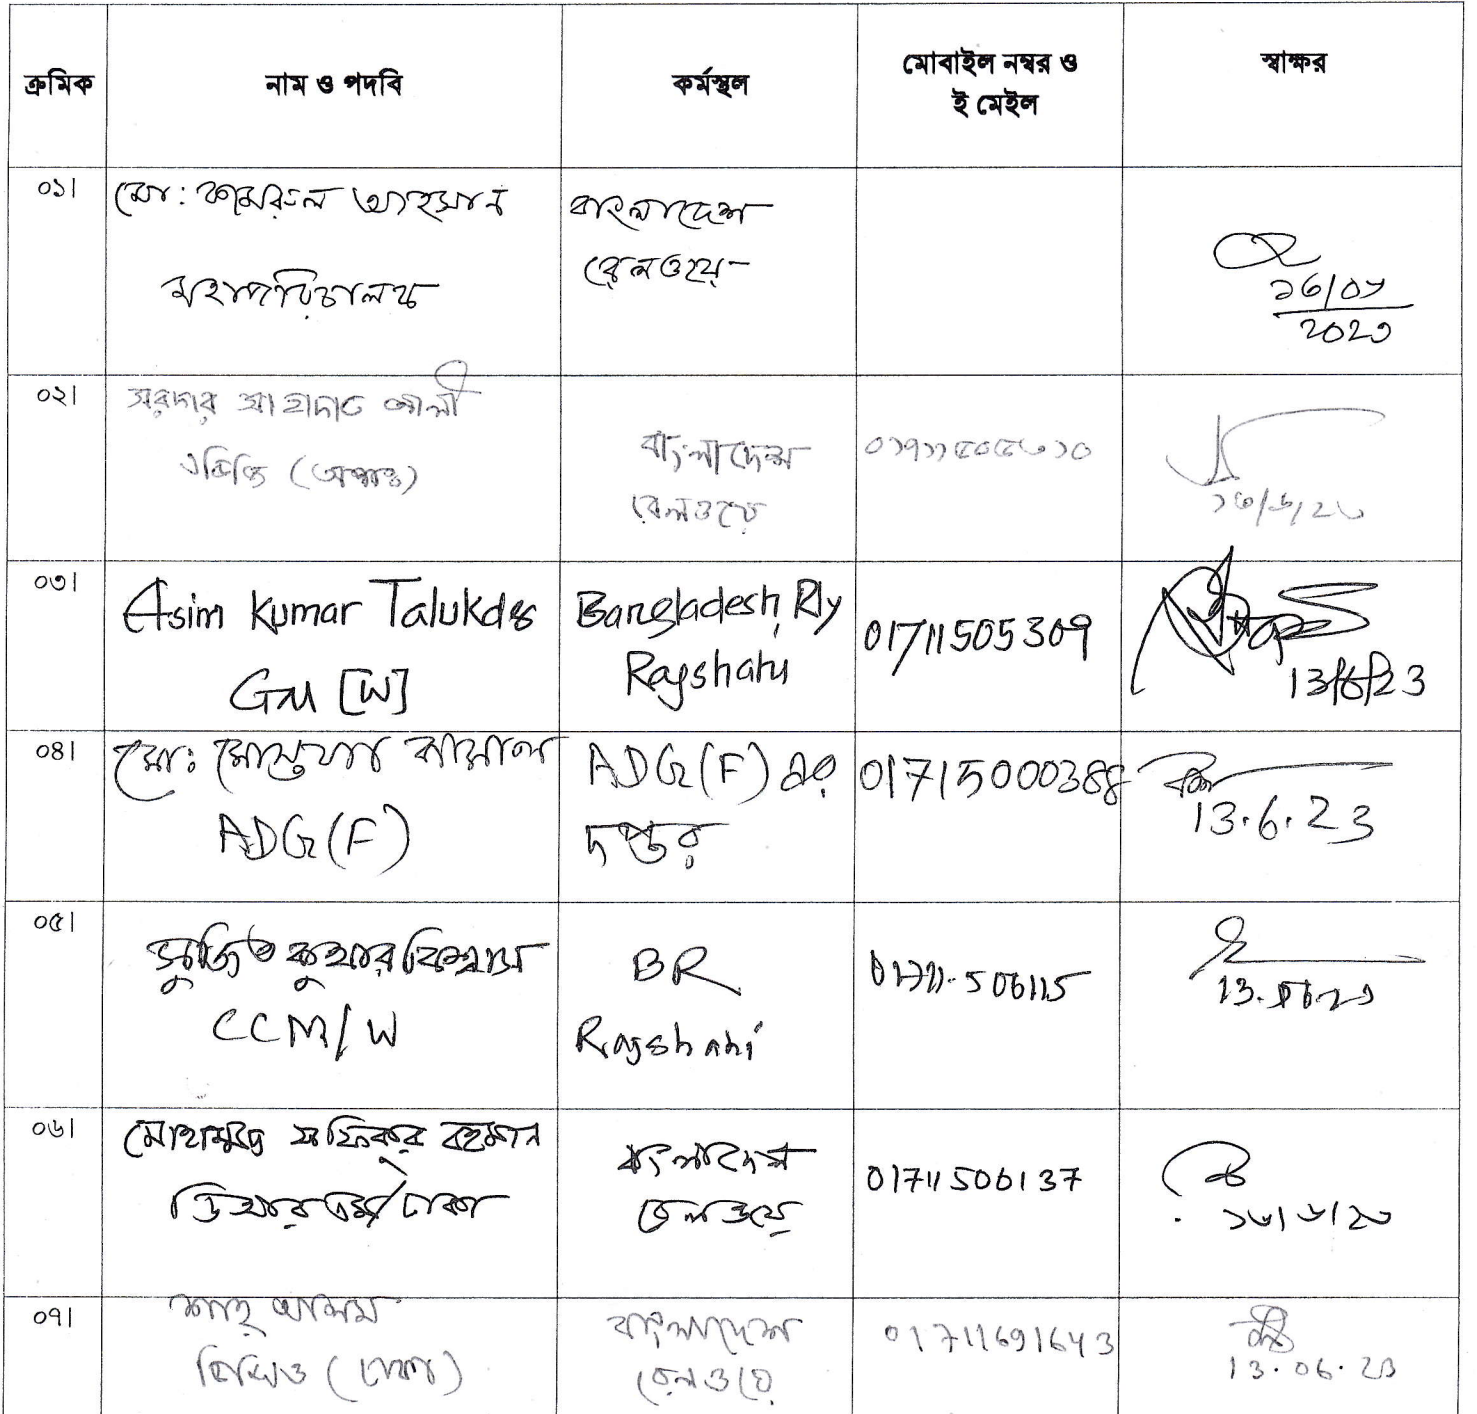 ক্রমিক
নাম ও পদবি
কর্মস্থল
মোবাইল নম্বর ও
ই মেইল
স্বাক্ষর
০১।
মো: কামরুল আহসান
মহাপরিচালক
বাংলাদেশ
রেলওয়ে
১৩/০৬
২০২৩
০২।
সরদার সাহাদাত আলী
এডিজি (অপাঃ)
বাংলাদেশ
রেলওয়ে
০১৭১১৫০৫৩১০
১৩/৬/২৩
০৩।
Asim Kumar Talukder
GM [W]
Bangladesh Rly
Rajshahi
01711505309
13/6/23
০৪।
মো: মোস্তফা কামাল
ADG(F)
ADG(F) এর
দপ্তর
01715000388
13.6.23
০৫।
সুজিত কুমার বিশ্বাস
CCM/W
BR
Rajshahi
01711-506115
13.06.23
০৬।
মোহাম্মদ সফিকুর রহমান
ডিআরএম/ঢাকা
বাংলাদেশ
রেলওয়ে
01711506137
১৩/৬/২৩
০৭।
শাহ্ আলম
ডিসিও (ঢাকা)
বাংলাদেশ
রেলওয়ে
01711691643
13.06.23